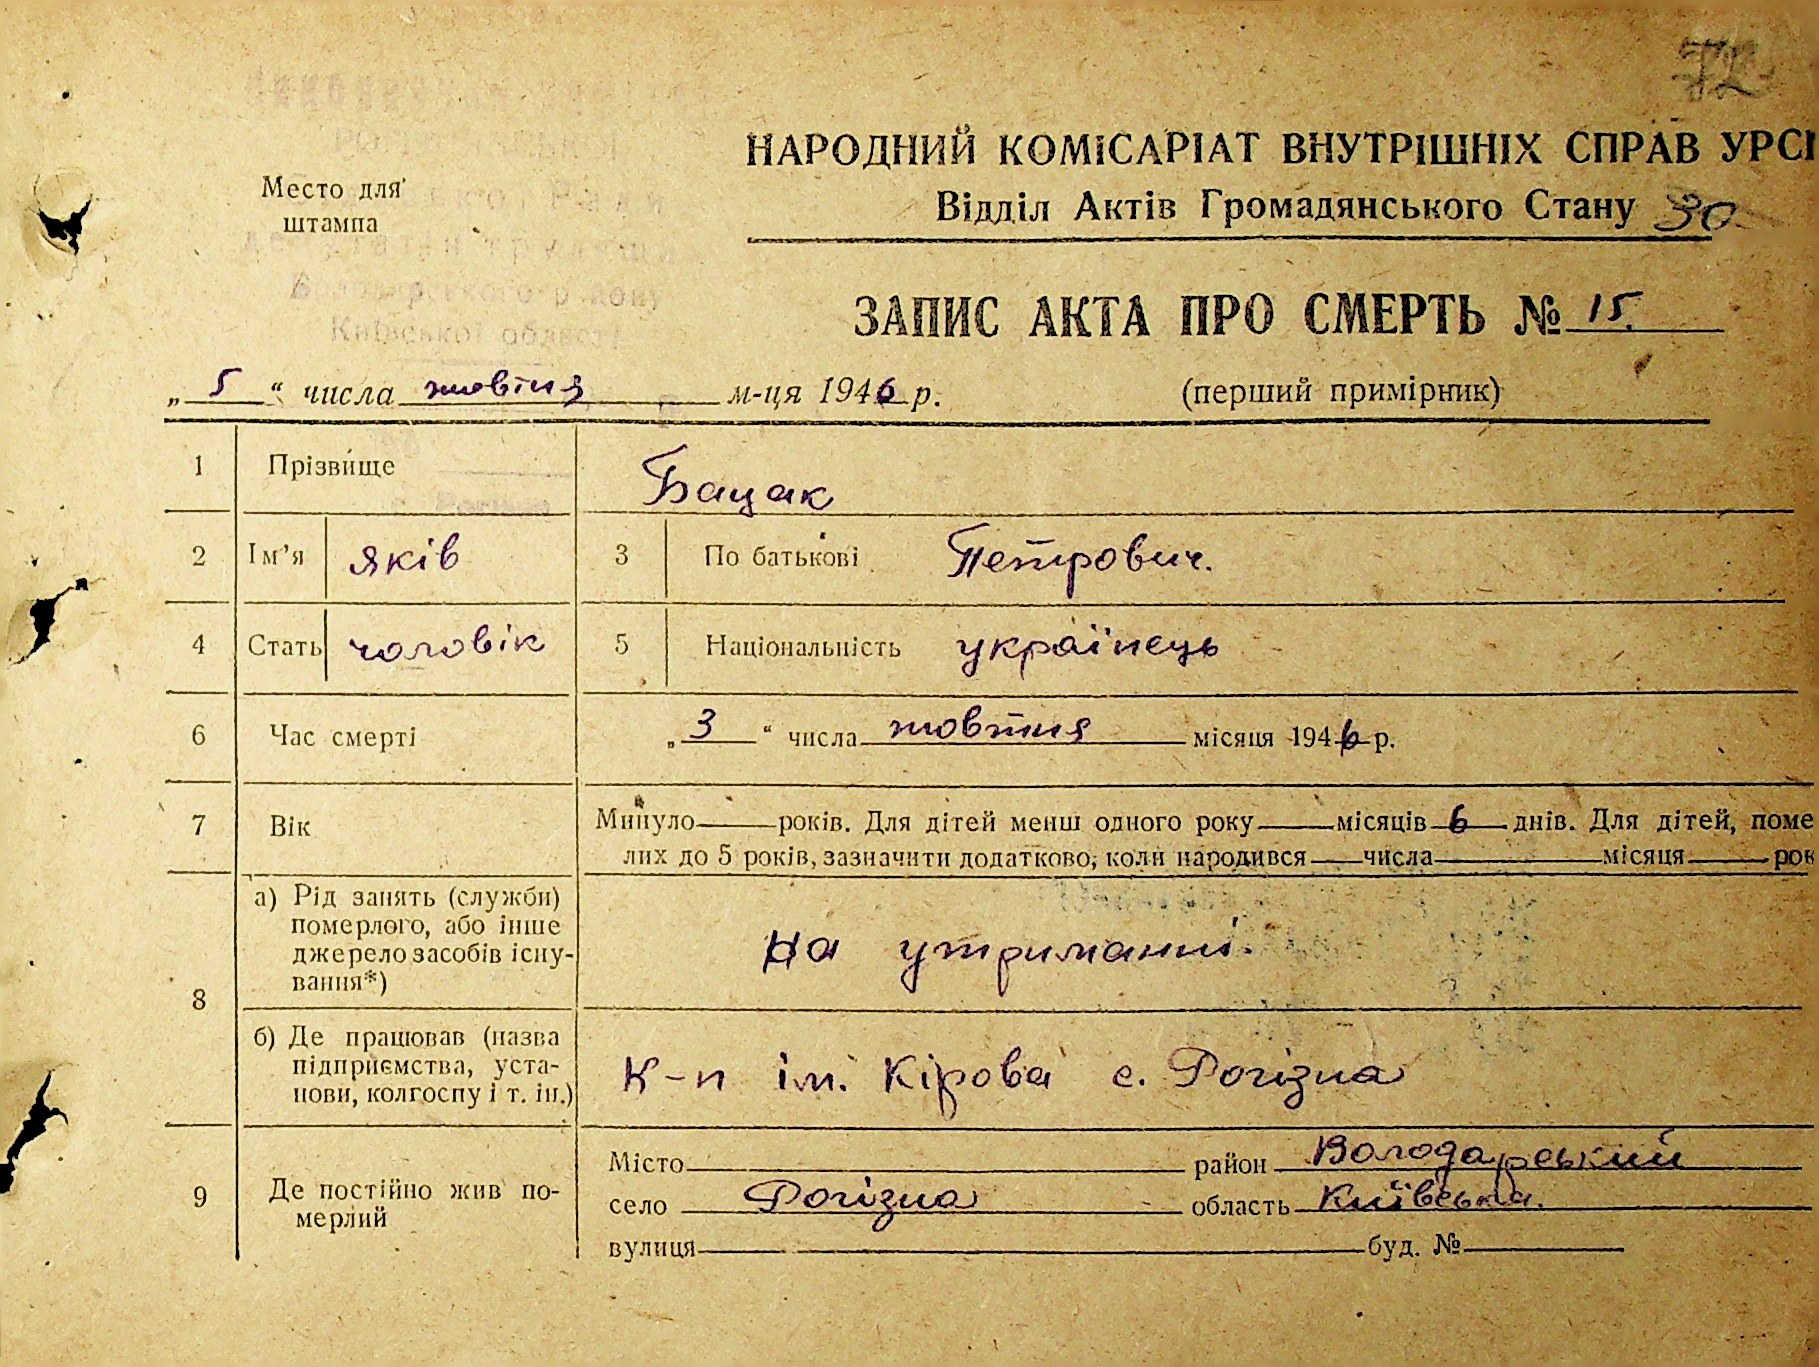 72
НАРОДНИЙ КОМІСАРІАТ ВНУТРІШНІХ СПРАВ УРСР
Место для
штампа
Відділ Актів Громадянського Стану 30
Київської області
ЗАПИС АКТА ПРО СМЕРТЬ № 15.
„ 5 “ числа жовтня м-ця 1946 р. (перший примірник)
1 Прізвище Бацак
2 Ім’я Яків 3 По батькові Петрович.
4 Стать чоловік 5 Національність українець
6 Час смерті „ 3 “ числа жовтня місяця 1946 р.
7 Вік Минуло — років. Для дітей менш одного року — місяців 6 днів. Для дітей, поме
лих до 5 років, зазначити додатково, коли народився — числа — місяця — рок
8 а) Рід занять (служби)
померлого, або інше
джерело засобів існу-
вання*) на утриманні.
б) Де працював (назва
підприємства, уста-
нови, колгоспу і т. ін.) К-п ім. Кірова с. Рогізна
9 Де постійно жив по-
мерлий
Місто район Володарський
село Рогізна область Київська.
вулиця буд. №